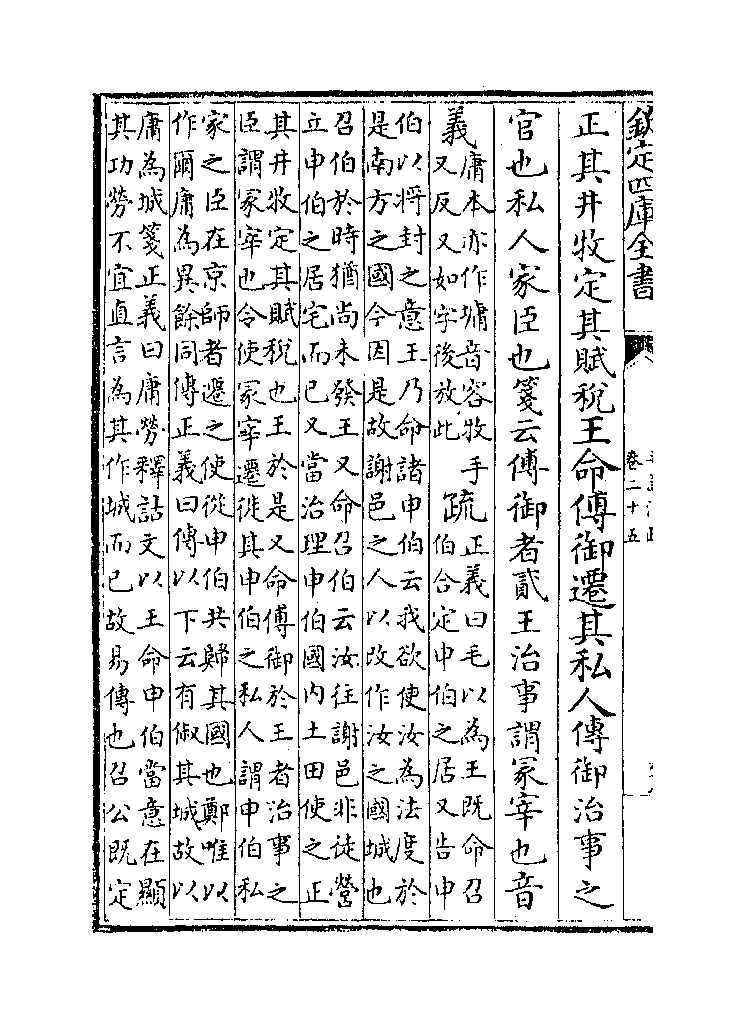 欽定四庫全書
卷二十五
正其井牧定其賦稅王命傅御遷其私人傅御治事之
官也私人家臣也箋云傅御者貳王治事謂冢宰也音
義
庸本亦作墉音容牧手
又反又如字後放此
疏
正義曰毛以為王既命召
伯合定申伯之居又告申
伯以將封之意王乃命諸申伯云我欲使汝為法度於
是南方之國今因是故謝邑之人以改作汝之國城也
召伯於時猶尚未發王又命召伯云汝往謝邑非徒營
立申伯之居宅而已又當治理申伯國內土田使之正
其井牧定其賦稅也王於是又命傅御於王者治事之
臣謂冢宰也令使冢宰遷徙其申伯之私人謂申伯私
家之臣在京師者遷之使從申伯共歸其國也鄭唯以
作爾庸為異餘同傳正義曰傳以下云有俶其城故以
庸為城箋正義曰庸勞釋詁文以王命申伯當意在顯
其功勞不宜直言為其作城而已故易傳也召公既定